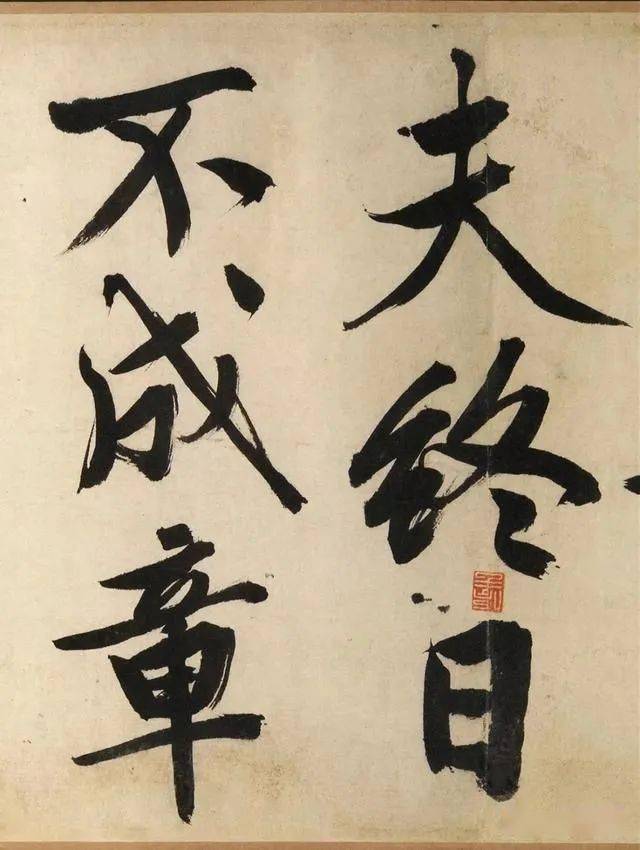 夫终日
不成章